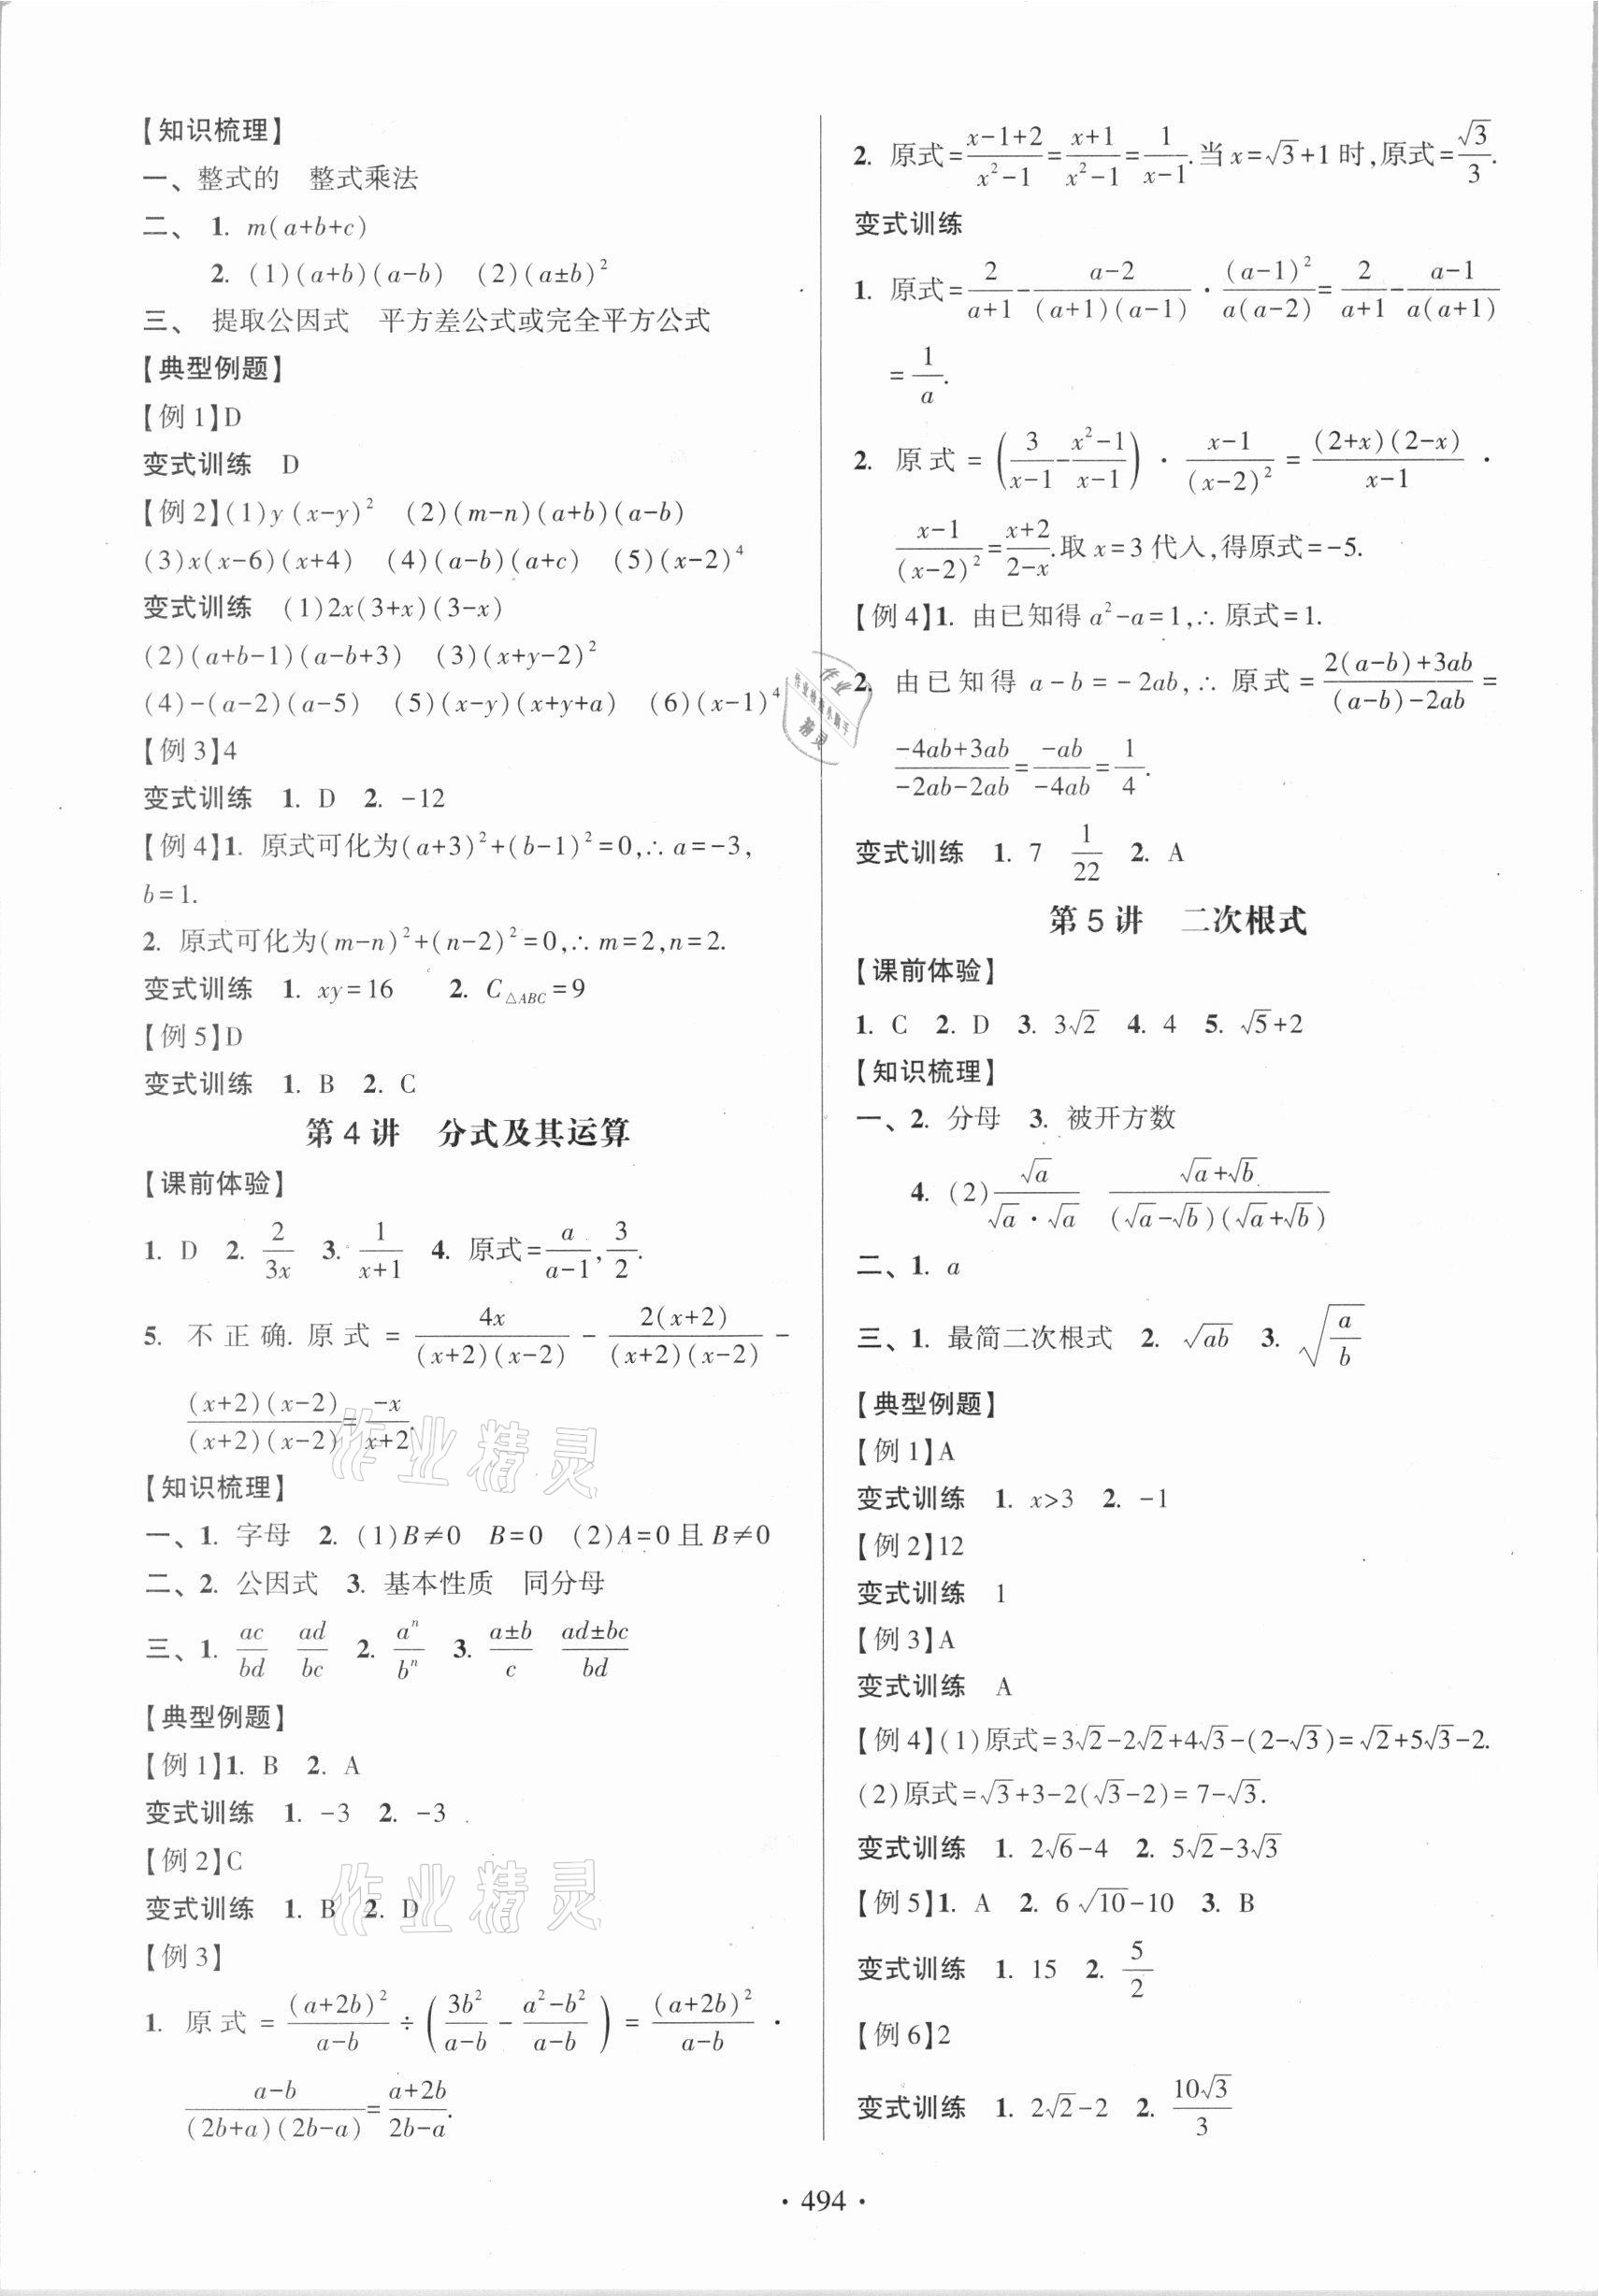 【知识梳理】
一、整式的　整式乘法
二、 1. m(a+b+c)
2. (1)(a+b)(a-b)　(2)(a±b)²
三、 提取公因式　平方差公式或完全平方公式
【典型例题】
【例 1】D
变式训练　D
【例 2】(1)y(x-y)²　(2)(m-n)(a+b)(a-b)
(3)x(x-6)(x+4)　(4)(a-b)(a+c)　(5)(x-2)⁴
变式训练　(1)2x(3+x)(3-x)
(2)(a+b-1)(a-b+3)　(3)(x+y-2)²
(4)-(a-2)(a-5)　(5)(x-y)(x+y+a)　(6)(x-1)⁴
【例 3】4
变式训练　1. D　2. -12
【例 4】1. 原式可化为(a+3)²+(b-1)²=0,∴a=-3,
b=1.
2. 原式可化为(m-n)²+(n-2)²=0,∴m=2,n=2.
变式训练　1. xy=16　2. C△ABC=9
【例 5】D
变式训练　1. B　2. C
第 4 讲　分式及其运算
【课前体验】
1. D　2. 2/(3x)　3. 1/(x+1)　4. 原式=a/(a-1),3/2.
5. 不正确. 原式=4x/((x+2)(x-2))-2(x+2)/((x+2)(x-2))-
((x+2)(x-2))/((x+2)(x-2))=-x/(x+2).
【知识梳理】
一、1. 字母　2. (1)B≠0　B=0　(2)A=0且B≠0
二、2. 公因式　3. 基本性质　同分母
三、1. ac/bd　ad/bc　2. aⁿ/bⁿ　3. (a±b)/c　(ad±bc)/bd
【典型例题】
【例 1】1. B　2. A
变式训练　1. -3　2. -3
【例 2】C
变式训练　1. B　2. D
【例 3】
1. 原式=(a+2b)²/(a-b)÷(3b²/(a-b)-(a²-b²)/(a-b))=(a+2b)²/(a-b)·
(a-b)/((2b+a)(2b-a))=(a+2b)/(2b-a).
2. 原式=(x-1+2)/(x²-1)=(x+1)/(x²-1)=1/(x-1).当x=√3+1时,原式=√3/3.
变式训练
1. 原式=2/(a+1)-(a-2)/((a+1)(a-1))·(a-1)²/(a(a-2))=2/(a+1)-(a-1)/(a(a+1))
=1/a.
2. 原式=(3/(x-1)-(x²-1)/(x-1))·(x-1)/(x-2)²=((2+x)(2-x))/(x-1)·
(x-1)/(x-2)²=(x+2)/(2-x).取x=3代入,得原式=-5.
【例 4】1. 由已知得a²-a=1,∴原式=1.
2. 由已知得a-b=-2ab,∴原式=(2(a-b)+3ab)/((a-b)-2ab)=
(-4ab+3ab)/(-2ab-2ab)=-ab/-4ab=1/4.
变式训练　1. 7　1/22　2. A
第 5 讲　二次根式
【课前体验】
1. C　2. D　3. 3√2　4. 4　5. √5+2
【知识梳理】
一、2. 分母　3. 被开方数
4. (2)√a/(√a·√a)　(√a+√b)/((√a-√b)(√a+√b))
二、1. a
三、1. 最简二次根式　2. √(ab)　3. √(a/b)
【典型例题】
【例 1】A
变式训练　1. x>3　2. -1
【例 2】12
变式训练　1
【例 3】A
变式训练　A
【例 4】(1)原式=3√2-2√2+4√3-(2-√3)=√2+5√3-2.
(2)原式=√3+3-2(√3-2)=7-√3.
变式训练　1. 2√6-4　2. 5√2-3√3
【例 5】1. A　2. 6√10-10　3. B
变式训练　1. 15　2. 5/2
【例 6】2
变式训练　1. 2√2-2　2. 10√3/3
· 494 ·
作业精灵
作业精灵